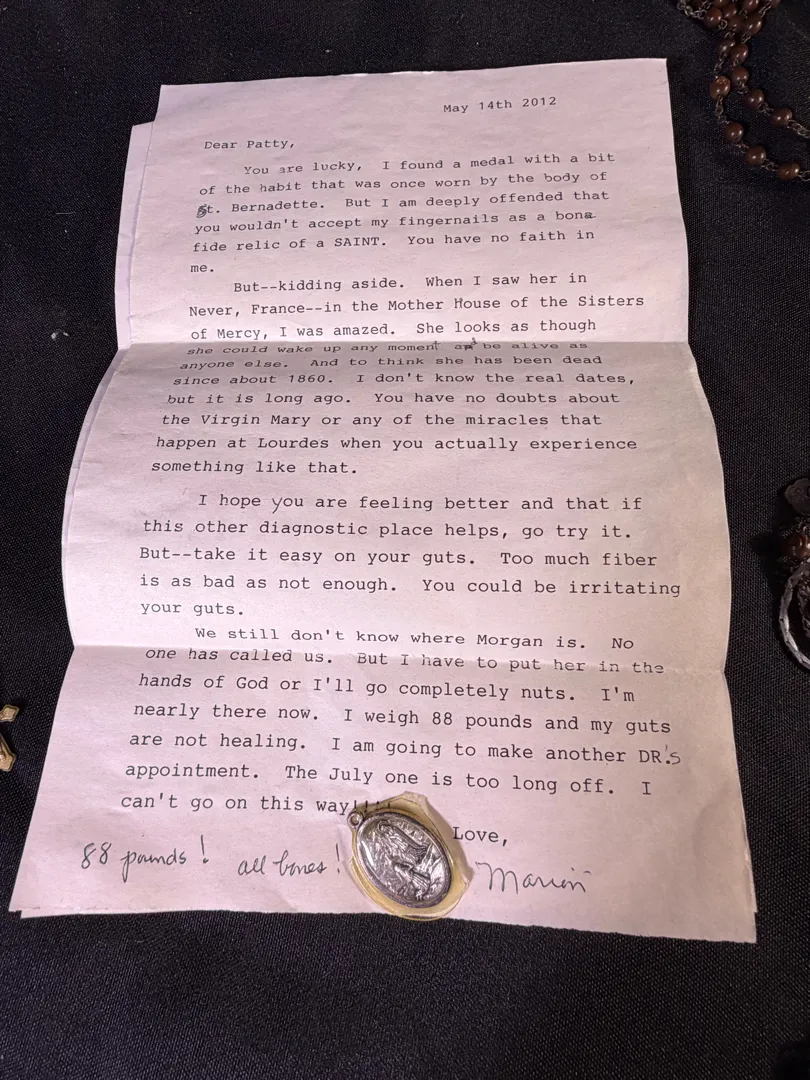 May 14th 2012
Dear Patty,
You are lucky, I found a medal with a bit
of the habit that was once worn by the body of
St. Bernadette. But I am deeply offended that
you wouldn't accept my fingernails as a bona
fide relic of a SAINT. You have no faith in
me.
But--kidding aside. When I saw her in
Never, France--in the Mother House of the Sisters
of Mercy, I was amazed. She looks as though
she could wake up any moment and be alive as
anyone else. And to think she has been dead
since about 1860. I don't know the real dates,
but it is long ago. You have no doubts about
the Virgin Mary or any of the miracles that
happen at Lourdes when you actually experience
something like that.
I hope you are feeling better and that if
this other diagnostic place helps, go try it.
But--take it easy on your guts. Too much fiber
is as bad as not enough. You could be irritating
your guts.
We still don't know where Morgan is. No
one has called us. But I have to put her in the
hands of God or I'll go completely nuts. I'm
nearly there now. I weigh 88 pounds and my guts
are not healing. I am going to make another DR's
appointment. The July one is too long off. I
can't go on this way!!!!
Love,
88 pounds! all bones! Marion